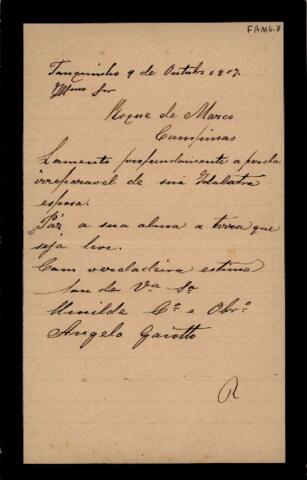 FAM6.8
Tanquinho 9 de Outubro 907.
Illmo Snr
Roque de Marco
Campinas
Lamento profundamente a perda
irreparavel de sua Idolatra
esposa.
Páz a sua alma a terra que
seja leve.
Com verdadeira estima
Sou de Va Sa
Umilde Co e Obro
Angelo Gaiotto
R